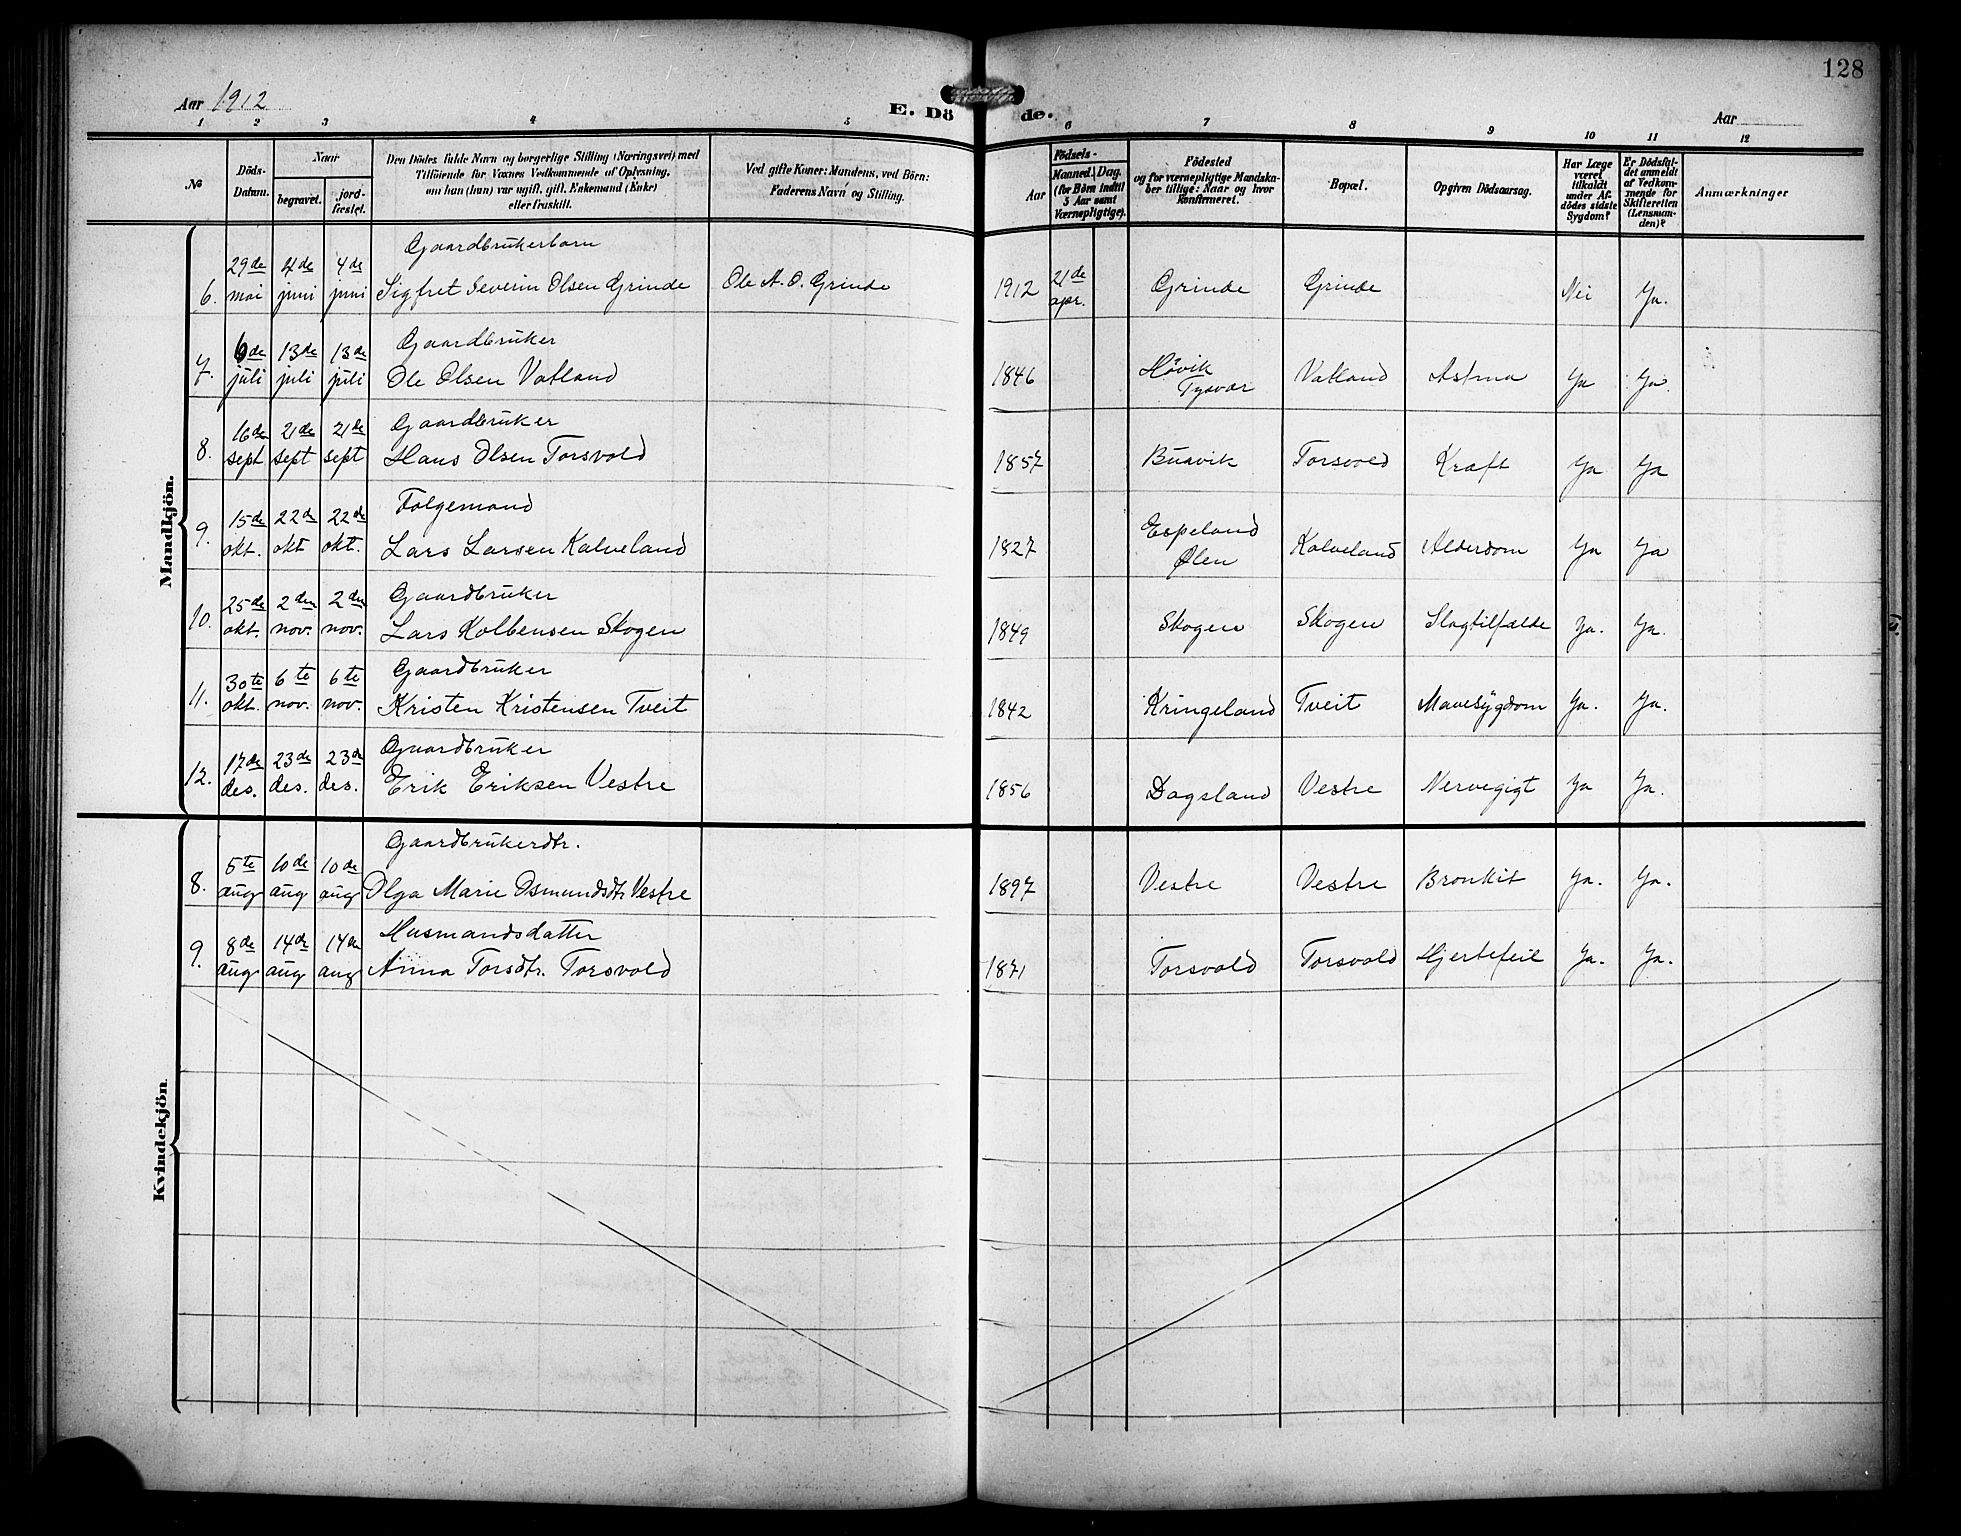 128
Aar 1912
E. Dö de.
Aar
1 2 3 4 5 6 7 8 9 10 11 12
No
Döds-
Datum.
Naar
begravet.
jord-
fæstet.
Den Dödes fulde Navn og borgerlige Stilling (Næringsvei) med
Tilföiende for Voxnes Vedkommende af Oplysning,
om han (hun) var ugift, gift, Enkemand (Enke)
eller fraskilt.
Ved gifte Koner: Mandens, ved Börn:
Faderens Navn og Stilling.
Födsels-
Aar
Maaned. Dag.
(for Börn indtil
5 Aar samt
Værnepligtige).
Födested
og for værnepligtige Mandska-
ber tillige: Naar og hvor
konfirmeret.
Bopæl.
Opgiven Dödsaarsag.
Har Læge
været
tilkaldt
under Af-
dödes sidste
Sygdom?
Er Dödsfal-
det anmeldt
af Vedkom-
mende for
Skifteretten
(Lensman-
den)?
Anmærkninger
Mandkjön.
Gaardbrukerbarn
29de 4de 4de 21de
6. mai juni juni Sigfret Severin Olsen Grinde Ole A. O. Grinde 1912 apr. Grinde Grinde Nei Ja.
Gaardbruker
6de 13de 13de Hövik
7. juli juli juli Ole Olsen Vatland 1846 Tysvær Vatland Astma Ja Ja.
Gaardbruker
16de 21de 21de
8. sept sept sept Hans Olsen Torsvold 1857 Buavik Torsvold Kræft Ja Ja
Folgemand
15de 22de 22de Espeland
9. okt. okt okt. Lars Larsen Kalveland 1827 Ølen Kalveland Alderdom Ja Ja
Gaardbruker
25de 2den 2den
10. okt. nov. nov. Lars Kolbensen Skogen 1849 Skogen Skogen Slagtilfælde Ja. Ja.
Gaardbruker
30te 6te 6te
11. okt. nov. nov. Kristen Kristensen Tveit 1842 Kringeland Tveit Mavesygdom Ja. Ja.
Gaardbruker
17de 23de 23de
12. des. des. des. Erik Eriksen Vestre 1856 Dagsland Vestre Nervegigt Ja Ja.
Kvindekjön.
Gaardbrukerdtr.
5te 10de 10de
8. aug aug aug Olga Marie Osmundsdtr Vestre 1897 Vestre Vestre Bronkit Ja. Ja.
Husmandsdatter
8de 14de 14de
9. aug aug aug Anna Torsdtr. Torsvold 1871 Torsvold Torsvold Hjertefeil Ja. Ja.